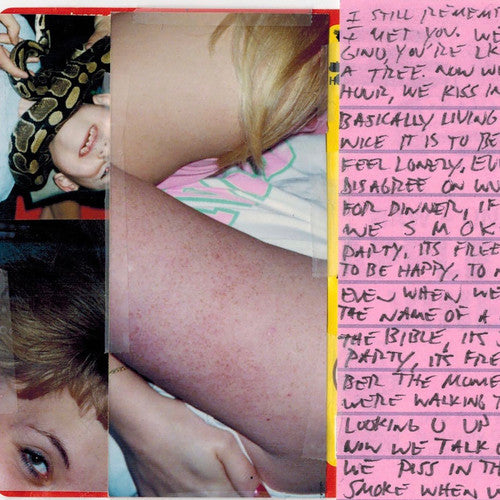 I STILL REMEM
I MET YOU. WE
GINO, YOU'RE LI
A TREE. NOW W
HOUR, WE KISS IN
BASICALLY LIVING
NICE IT IS TO BE
FEEL LONELY, EV
DISAGREE ON W
FOR DINNER, IF
WE SMOK
PARTY, ITS FREE
TO BE HAPPY, TO
EVEN WHEN WE
THE NAME OF A
THE BIBLE, ITS
PARTY, ITS FRE
BER THE MOME
WERE WALKING T
LOOKING U UP
NOW WE TALK
WE PISS IN TH
SMOKE WHEN